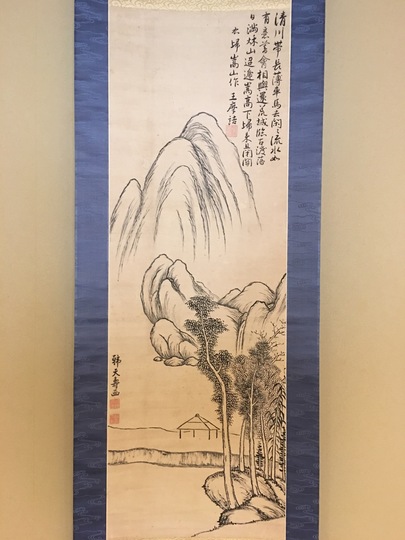 清川帶長薄車馬去閑〻流水如
有意暮禽相與還荒城臨古渡落
日滿秋山迢遞嵩高下歸来且閉關
右歸嵩山作 王摩詰
韓天壽画